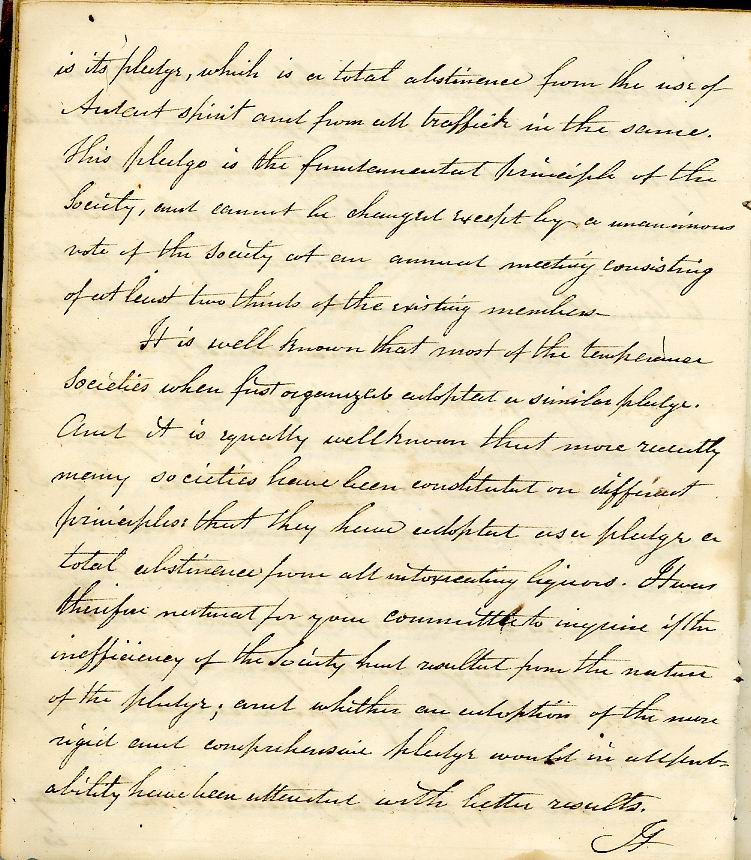 is its pledge, which is a total abstinence from the use of
Ardent spirit and from all traffick in the same.
This pledge is the fundamental principle of the
Society, and cannot be changed except by a unanimous
vote of the Society at an annual meeting consisting
of at least two thirds of the existing members
It is well known that most of the temperance
Societies when first organized adopted a similar pledge.
And it is equally well known that more recently
many societies have been constituted on different
principles: that they have adopted as a pledge a
total abstinence from all intoxicating liquors. It was
therefore natural for your committee to inquire if the
inefficiency of the Society had resulted from the nature
of the pledge; and whether an adoption of the more
rigid and comprehensive pledge would in all prob-
ability have been attended with better results.
It